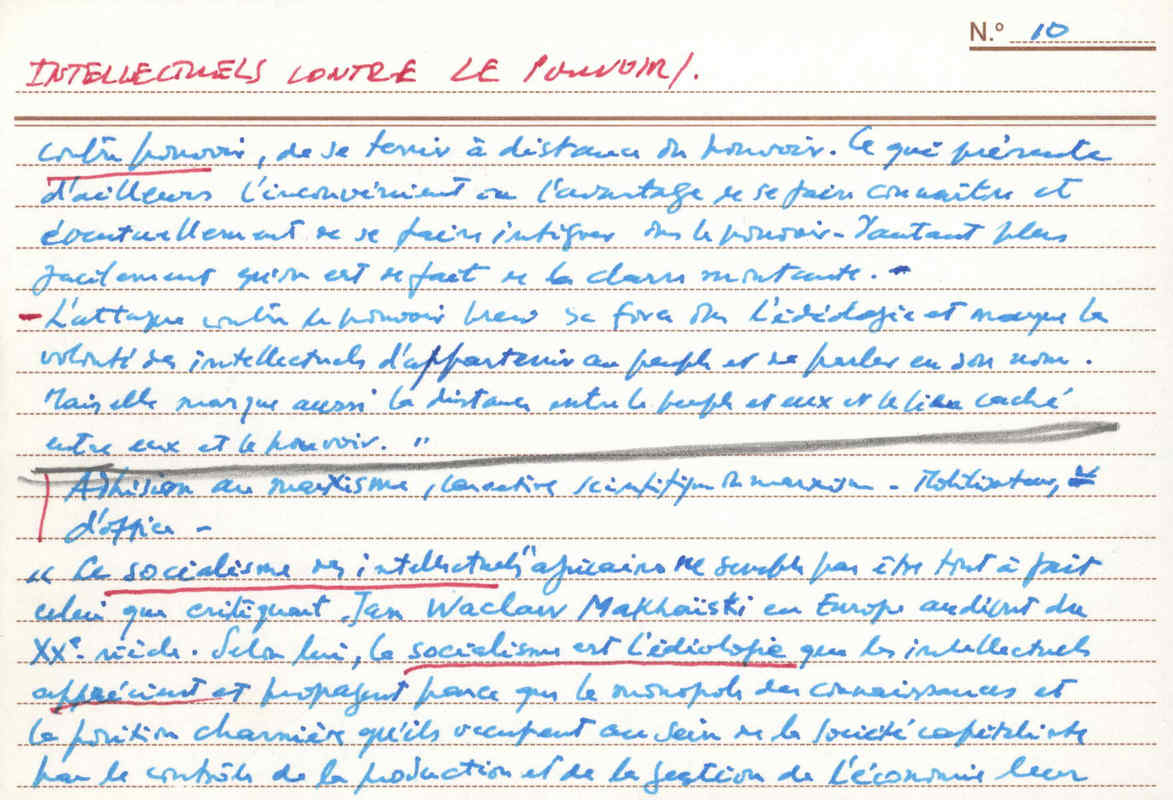 N.º 10
INTELLECTUELS CONTRE LE POUVOIR/.
contre pouvoir, de se tenir à distance du pouvoir. Ce qui présente
d'ailleurs l'inconvénient ou l'avantage de se faire connaître et
éventuellement de se faire intégrer ds le pouvoir - D'autant plus
facilement qu'on est de fait de la classe montante. -
- L'attaque contre le pouvoir se fera ds l'idéologie et marque la
volonté des intellectuels d'appartenir au peuple et de parler en son nom.
Mais elle marque aussi la distance entre le peuple et eux et le lien caché
entre eux et le pouvoir. "
Adhésion au marxisme, scientifique du marxisme - Mobilisateur,
d'office -
" Le socialisme des intellectuels" africains ne semble pas être tout à fait
celui que critiquent Jan Waclaw Makhaïski en Europe au début du
XXe siècle. Selon lui, le socialisme est l'idéologie que les intellectuels
apprécient et propagent parce que le monopole des connaissances et
la position charnière qu'ils occupent au sein de la société capitaliste
par le contrôle de la production et de la gestion de l'économie leur